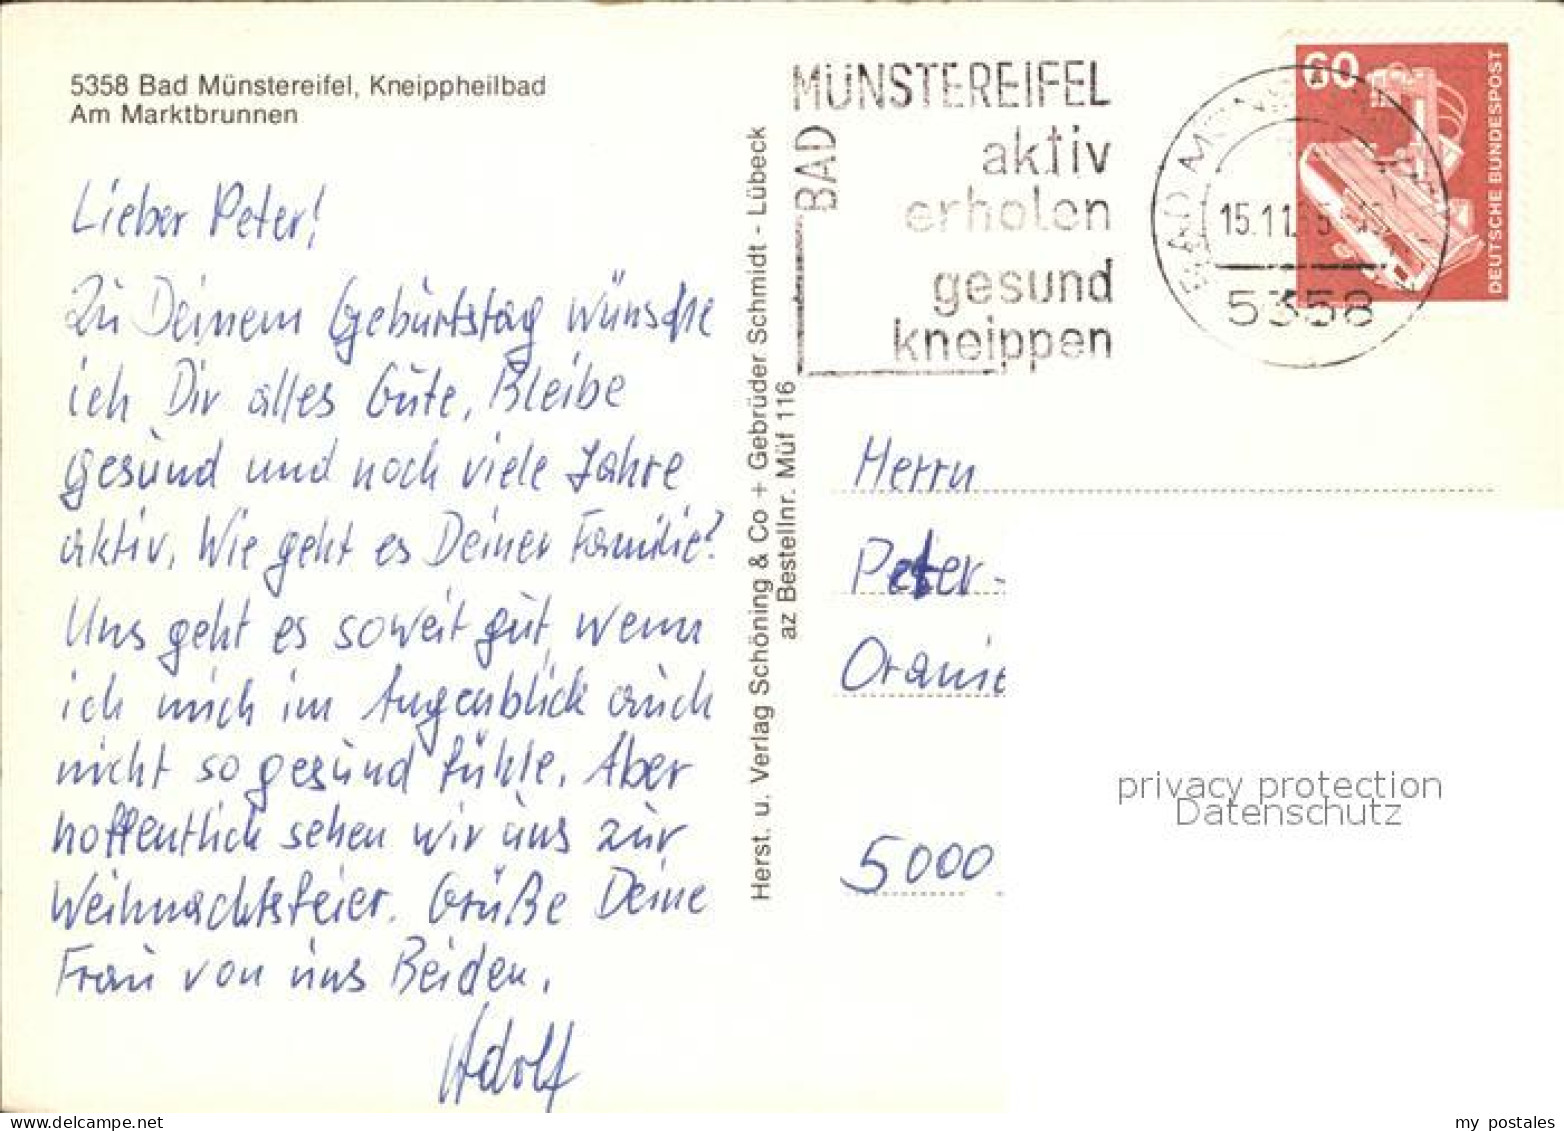 5358 Bad Münstereifel, Kneippheilbad
Am Marktbrunnen
Lieber Peter!
Zu Deinem Geburtstag wünsche
ich Dir alles Gute, Bleibe
gesund und noch viele Jahre
aktiv. Wie geht es Deiner Familie?
Uns geht es soweit gut, wenn
ich mich im Augenblick auch
nicht so gesund fühle. Aber
hoffentlich sehen wir uns zur
Weihnachtsfeier. Grüße Deine
Frau von uns Beiden.
Adolf
Herst. u. Verlag Schöning & Co + Gebrüder Schmidt - Lübeck
az Bestellnr. Müf 116
BAD
MÜNSTEREIFEL
aktiv
erholen
gesund
kneippen
BAD
15.11.
5358
60
DEUTSCHE BUNDESPOST
Herrn
Peter-
Oranie
5000
privacy protection
Datenschutz
my postales